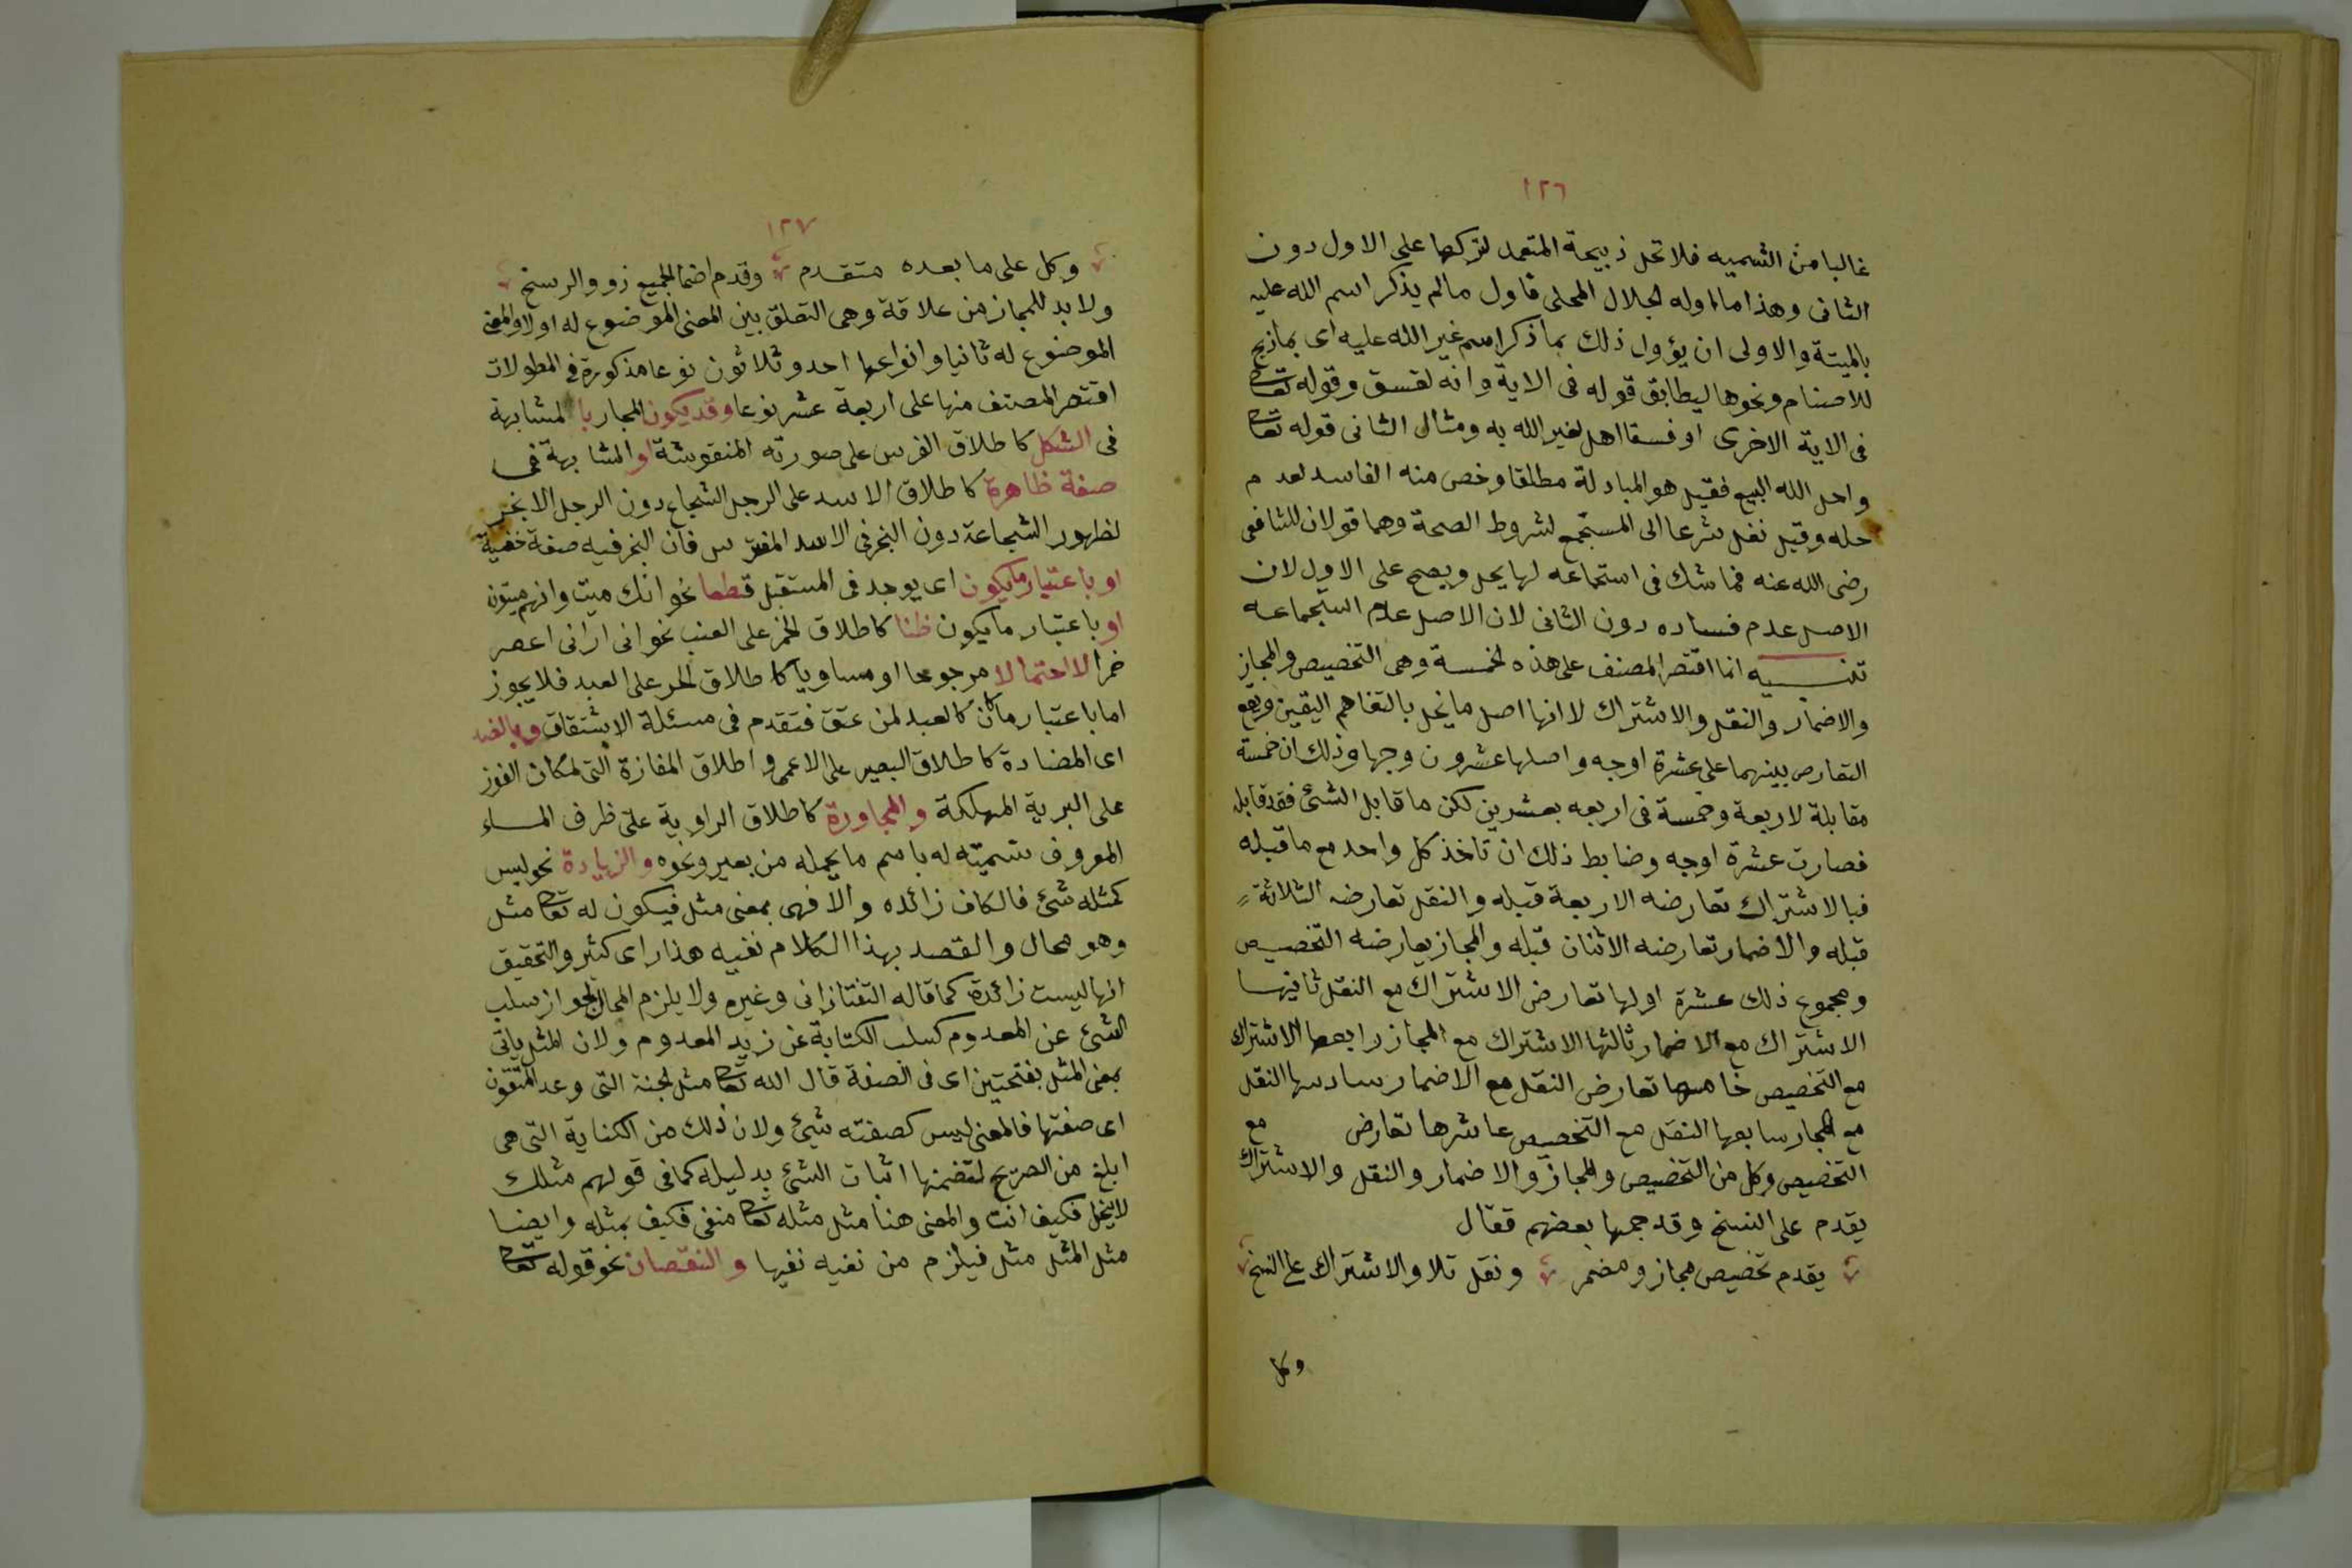 ١٢٦
غالبا من التسميه فلا تحل ذبيحة المتعمد لتركها على الاول دون
الثانى وهذا ما اوله الجلال المحلى فاول مالم يذكر اسم الله عليه
بالميتة والاولى ان يؤول ذلك بما ذكر اسم غير الله عليه اى بما ذبح
للاصنام ونحوها ليطابق قوله فى الاية وانه لفسق وقوله تعا
فى الاية الاخرى او فسقا اهل لغير الله به ومثال الثانى قوله تعا
واحل الله البيع فقيل هو المبادلة مطلقا وخص منه الفاسد لعدم
حله وقيل نقل شرعا الى المستجمع لشروط الصحة وهما قولان للشافعى
رضى الله عنه فما شك فى استجماعه لها يحل ويصح على الاول لان
الاصل عدم فساده دون الثانى لان الاصل عدم استجماعه
تنبيه انما اقتصر المصنف على هذه الخمسة وهى التخصيص والمجاز
والاضمار والنقل والاشتراك لانها اصل ما يخل بالتفاهم اليقين ويقع
التعارص بينهما على عشرة اوجه واصلها عشرون وجها وذلك ان خمسة
مقابلة لاربعة وخمسة فى اربعه بعشرين لكن ما قابل الشئ فقد قابله
فصارت عشرة اوجه وضابط ذلك ان تاخذ كل واحد مع ما قبله
فبالاشتراك تعارضه الاربعة قبله والنقل تعارضه الثلاثة
قبله والاضمار تعارضه الاثنان قبله والمجاز يعارضه التخصيص
ومجموع ذلك عشرة اولها تعارض الاشتراك مع النقل ثانيها
الاشتراك مع الاضمار ثالثها الاشتراك مع المجاز رابعها الاشتراك
مع التخصيص خامسها تعارض النقل مع الاضمار سادسها النقل
مع المجاز سابعها النقل مع التخصيص عاشرها تعارض مع
التخصيص وكل من التخصيص والمجاز والاضمار والنقل والاشتراك
يقدم على النسخ وقد جمعها بعضهم فقال
يقدم تخصيص مجاز ومضمر ونقل تلا والاشتراك على النسخ
وكل
١٢٧
وكل على ما بعده متقدم وقدم اضما لجميع زو والرسخ
ولابد للمجاز من علاقة وهى التعلق بين المعنى الموضوع له اولا والمعنى
الموضوع له ثانيا وانواعها احد وثلاثون نوعا مذكورة فى المطولات
اقتصر المصنف منها على اربعة عشر نوعا وقد يكون المجاز بالمشابهة
فى الشكل كاطلاق الفرس على صورته المنقوشة او المشابهة فى
صفة ظاهرة كاطلاق الاسد على الرجل الشجاع دون الرجل الابخر
لظهور الشجاعة دون البخر فى الاسد المفترس فان البخر فيه صفة خفية
او باعتبار ما يكون اى يوجد فى المستقبل قطعا نحو انك ميت وانهم ميتون
او باعتبار ما يكون ظنا كاطلاق الخمر على العنب نحو انى ارانى اعصر
خمرا لا احتمالا مرجوعا او مساويا كاطلاق الحر على العبد فلا يجوز
اما باعتبار ما كان كالعبد لمن عتق فتقدم فى مسئلة الاشتقاق وبالضد
اى المضادة كاطلاق البصير على الاعمى واطلاق المفازة التى لمكان الفوز
على البرية المهلكة والمجاورة كاطلاق الراوية على ظرف الماء
المعروف تسميته له باسم ما يحمله من بعير ونحوه والزيادة نحو ليس
كمثله شئ فالكاف زائده والا فهى بمعنى مثل فيكون له تعا مثل
وهو محال والقصد بهذا الكلام نفيه هذا راى كثير والتحقيق
انها ليست زائدة كما قاله التفتازانى وغيره ولا يلزم المحال لجواز سلب
الشئ عن المعدوم كسلب الكتابة عن زيد المعدوم ولان المثل ياتى
بمعنى المثل بفتحتين اى فى الصفة قال الله تعا مثل الجنة التى وعد المتقون
اى صفتها فالمعنى ليس كصفته شيئ ولان ذلك من الكناية التى هى
ابلغ من الصريح لتضمنها اثبات الشئ بدليله كما فى قولهم مثلك
لا يبخل فكيف انت والمعنى هنا مثل مثله تعا منفى فكيف بمثله وايضا
مثل المثل مثل فيلزم من نفيه نفيها والنقصان نحو قوله تعا